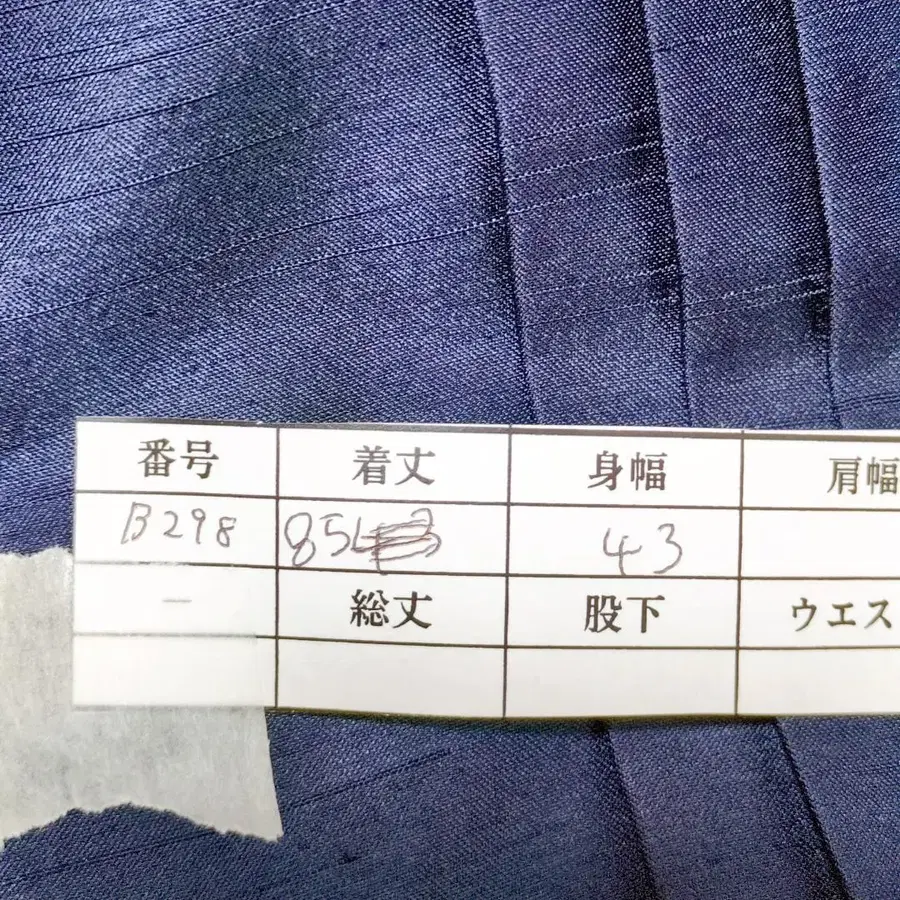 番号 着丈 身幅 肩幅
B298 85 43
— 総丈 股下 ウエス